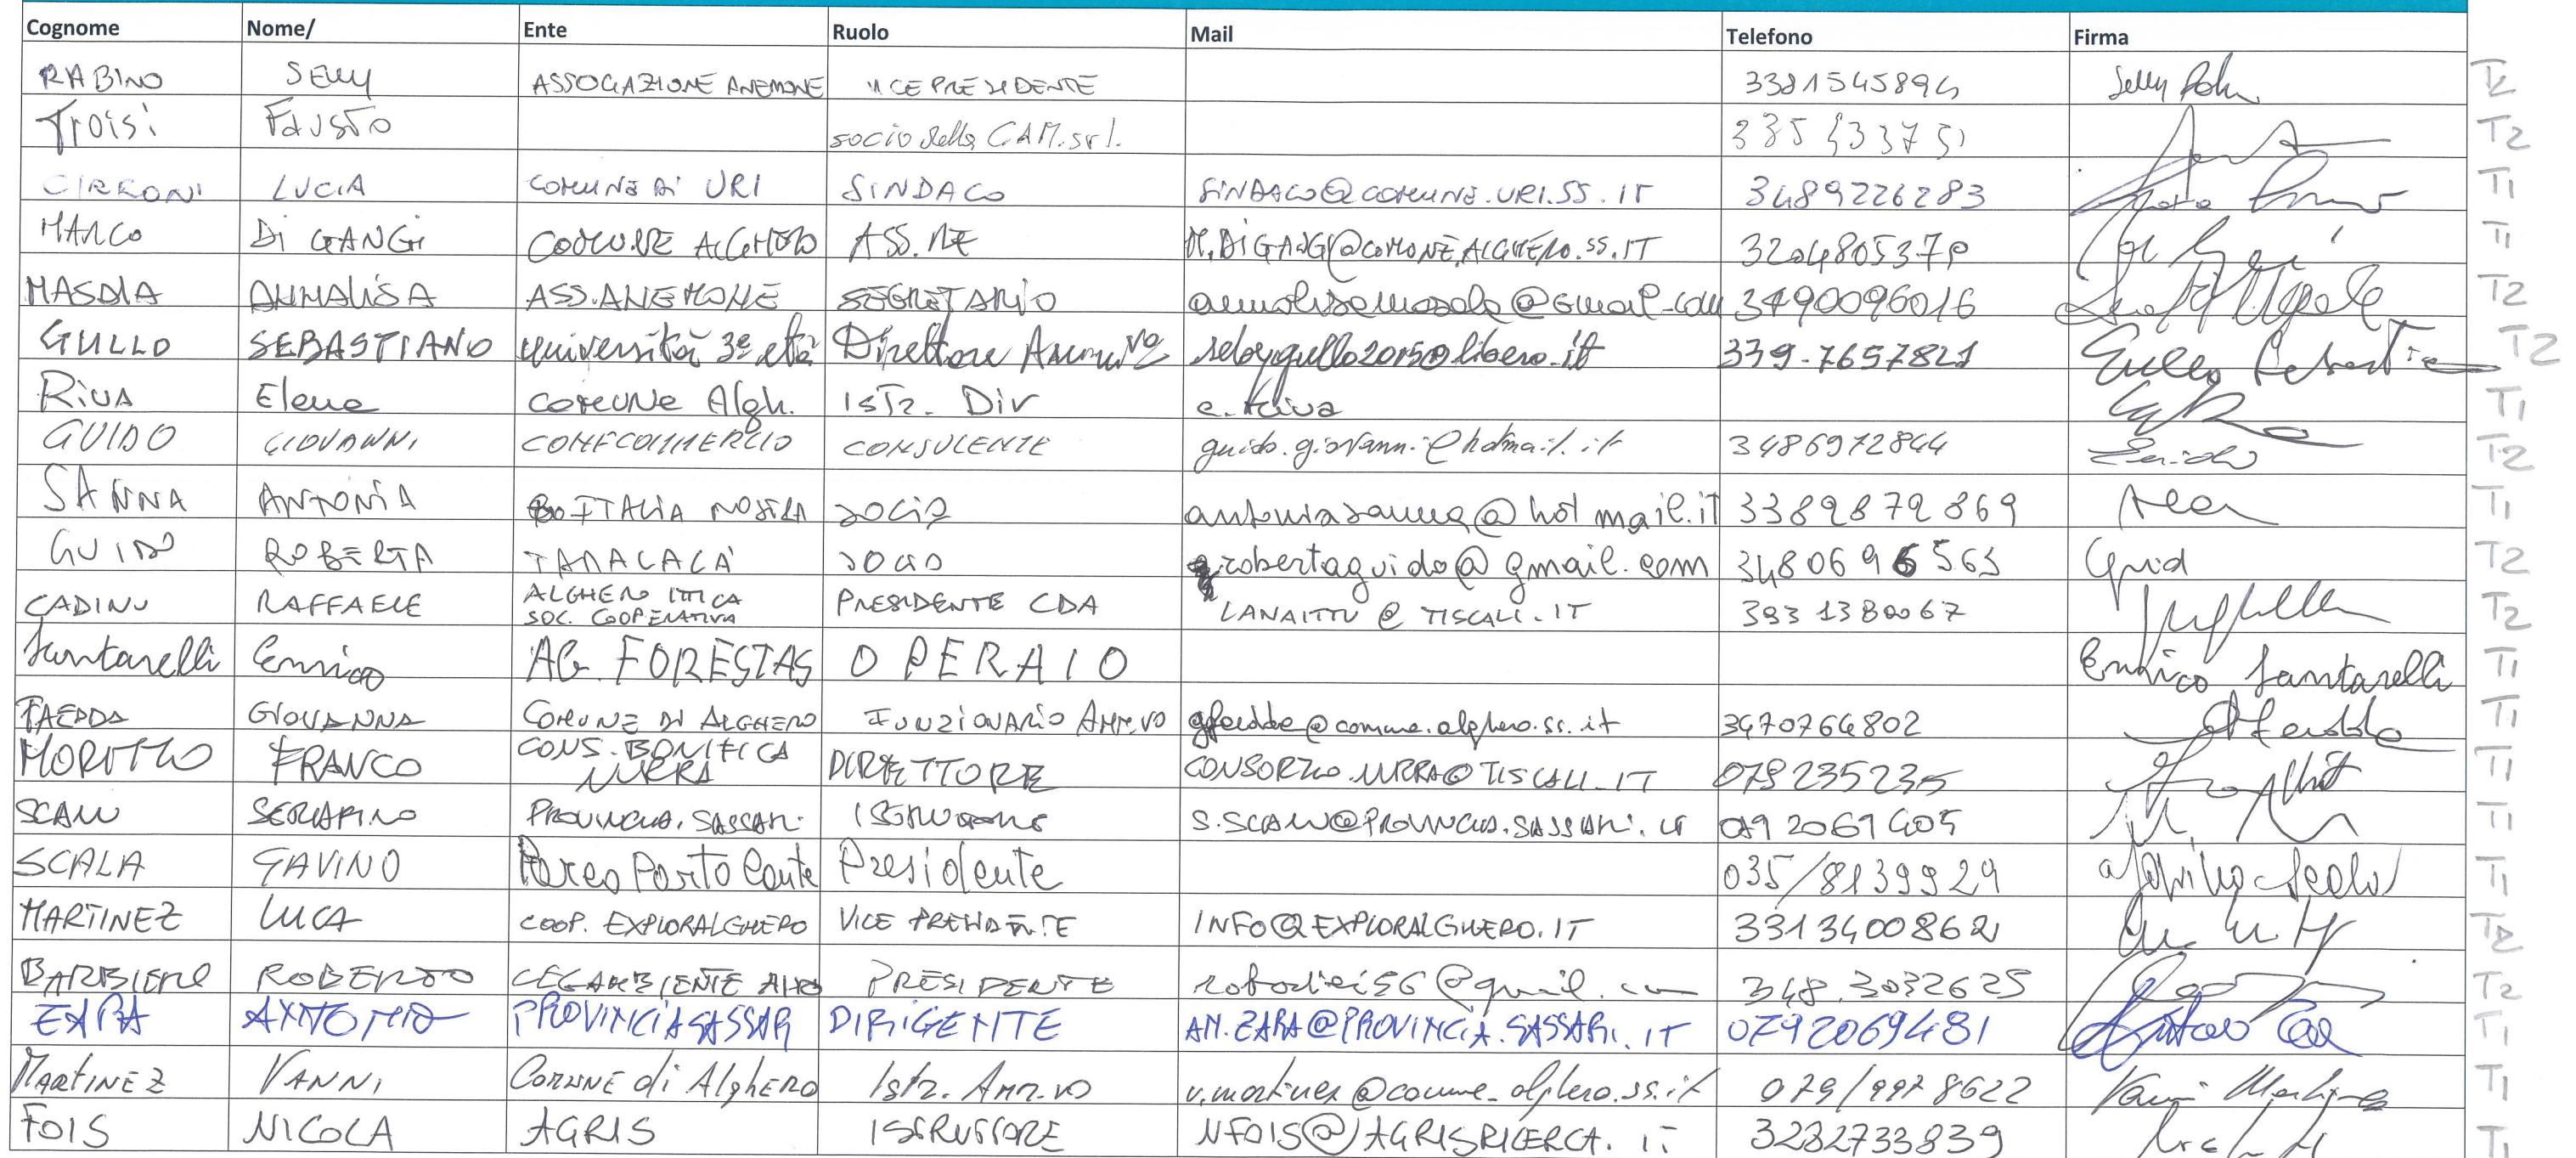 Cognome Nome/ Ente Ruolo Mail Telefono Firma
RABINO Selly ASSOCIAZIONE ANEMONE VICE PRESIDENTE 3381545894 Selly T2
Troisi FAUSTO socio della CAM.srl. T2
CIRRONI LUCIA COMUNE DI URI SINDACO SINDACO@COMUNE.URI.SS.IT 3489226283 T1
MARCO Di GANGi COMUNE ALGHERO ASS.RE M.DIGANGI@COMUNE.ALGHERO.SS.IT T1
MASALA ANNALISA ASS.ANEMONE SEGRETARIO annalisamasala@gmail.com 3490096016 T2
GULLO SEBASTIANO università 3ª età Direttore Amm.vo sebygullo2015@libero.it 339-7657821 Gullo Sebastiano T2
RiVA Elena COMUNE Algh. ISTR. Div T1
GUIDO GIOVANNI CONFCOMMERCIO CONSULENTE guido.giovanni@hotmail.it 3486972844 Guido T2
SANNA ANTONIA ITALIA NOSTRA SOCIA antoniasanna@hotmail.it 3389872869 T1
GUIDO ROBERTA TAMALACÀ SOCIO robertaguido@gmail.com 3480696563 Guid T2
CADINU RAFFAELE ALGHERO ITTICA PRESIDENTE CDA LANAITTU@TISCALI.IT 3931380067 T2
SOC. COOPERATIVA
Santarelli Enrico AG. FORESTAS OPERAIO Enrico Santarelli T1
FAEDDA GIOVANNA COMUNE DI ALGHERO FUNZIONARIO AMM.VO gfaedda@comune.alghero.ss.it 3470764802 T1
CONS. BONIFICA
FRANCO NURRA DIRETTORE CONSORZIO.NURRA@TISCALI.IT 079235235 T1
SCANU SERAFINO PROVINCIA SASSARI S.SCANU@PROVINCIA.SASSARI.IT T1
SCALA GAVINO Parco Porto Conte Presidente 035/8139929 Gavino Scala T1
MARTINEZ LUCA COOP. EXPLORALGHERO VICE PRESIDENTE INFO@EXPLORALGHERO.IT 3313400862 T2
BARBIERI ROBERTO LEGAMBIENTE AHO PRESIDENTE 348.3032625 T2
ZARA ANTONIO PROVINCIA SASSARI DIRIGENTE AN.ZARA@PROVINCIA.SASSARI.IT 0792069481 T1
MARTINEZ VANNI COMUNE di AlgHERO Istr. Amm.vo v.martinez@comune.alghero.ss.it 079/9978622 Vanni Martinez T1
FOIS NICOLA AGRIS ISTRUTTORE NFOIS@AGRISRICERCA.IT 3232733839 T1